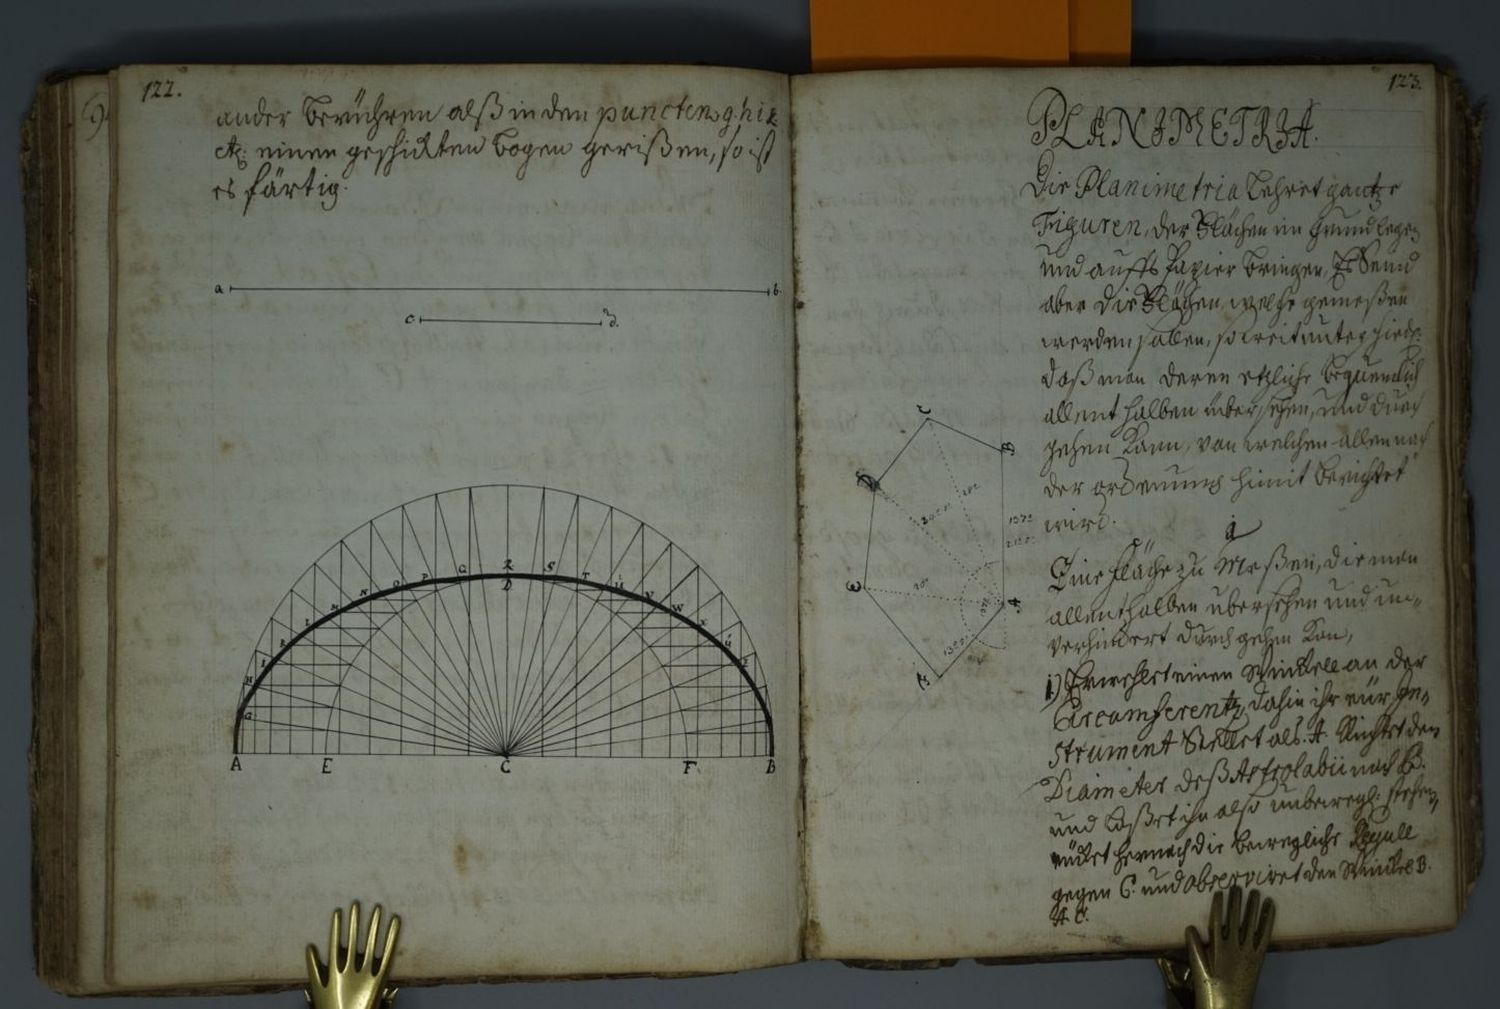 122.
ander berühren alß in den punctens g. h i k
etc. einen geschickten bogen gerißen, so ist
es färtig.
a b.
c d.
G H I K L M N O P Q R S T U V W X Y Z
D
A E C F B
123.
PLANIMETRIA.
Die Planimetria lehret gantze
Figuren, der Flächen im Grund legen
und auffs Papier bringen, Es seind
aber die Flächen, welche gemeßen
werden sollen, so weit unterschied:
daß man deren etzliche bequemlich
allenthalben übersehen, und durch
gehen kann, von welchen allen nach
der ordenung himit berichtet
wird.
C
B
D
E
A
B
Eine Fläche zu Meßen, die man
allenthalben übersehen und un-
verhindert durchgehen kan,
1) Erwehlet einen Winckell an der
Circumferentz, dahin ihr eür In-
strument stellet als. A. Richtet den
Diameter deß Astrolabii nach B.
und laßet ihn also unbewegl: stehen,
rücket hernach die bewegliche Regull
gegen C. und observiret den Winckel B.
A. C.